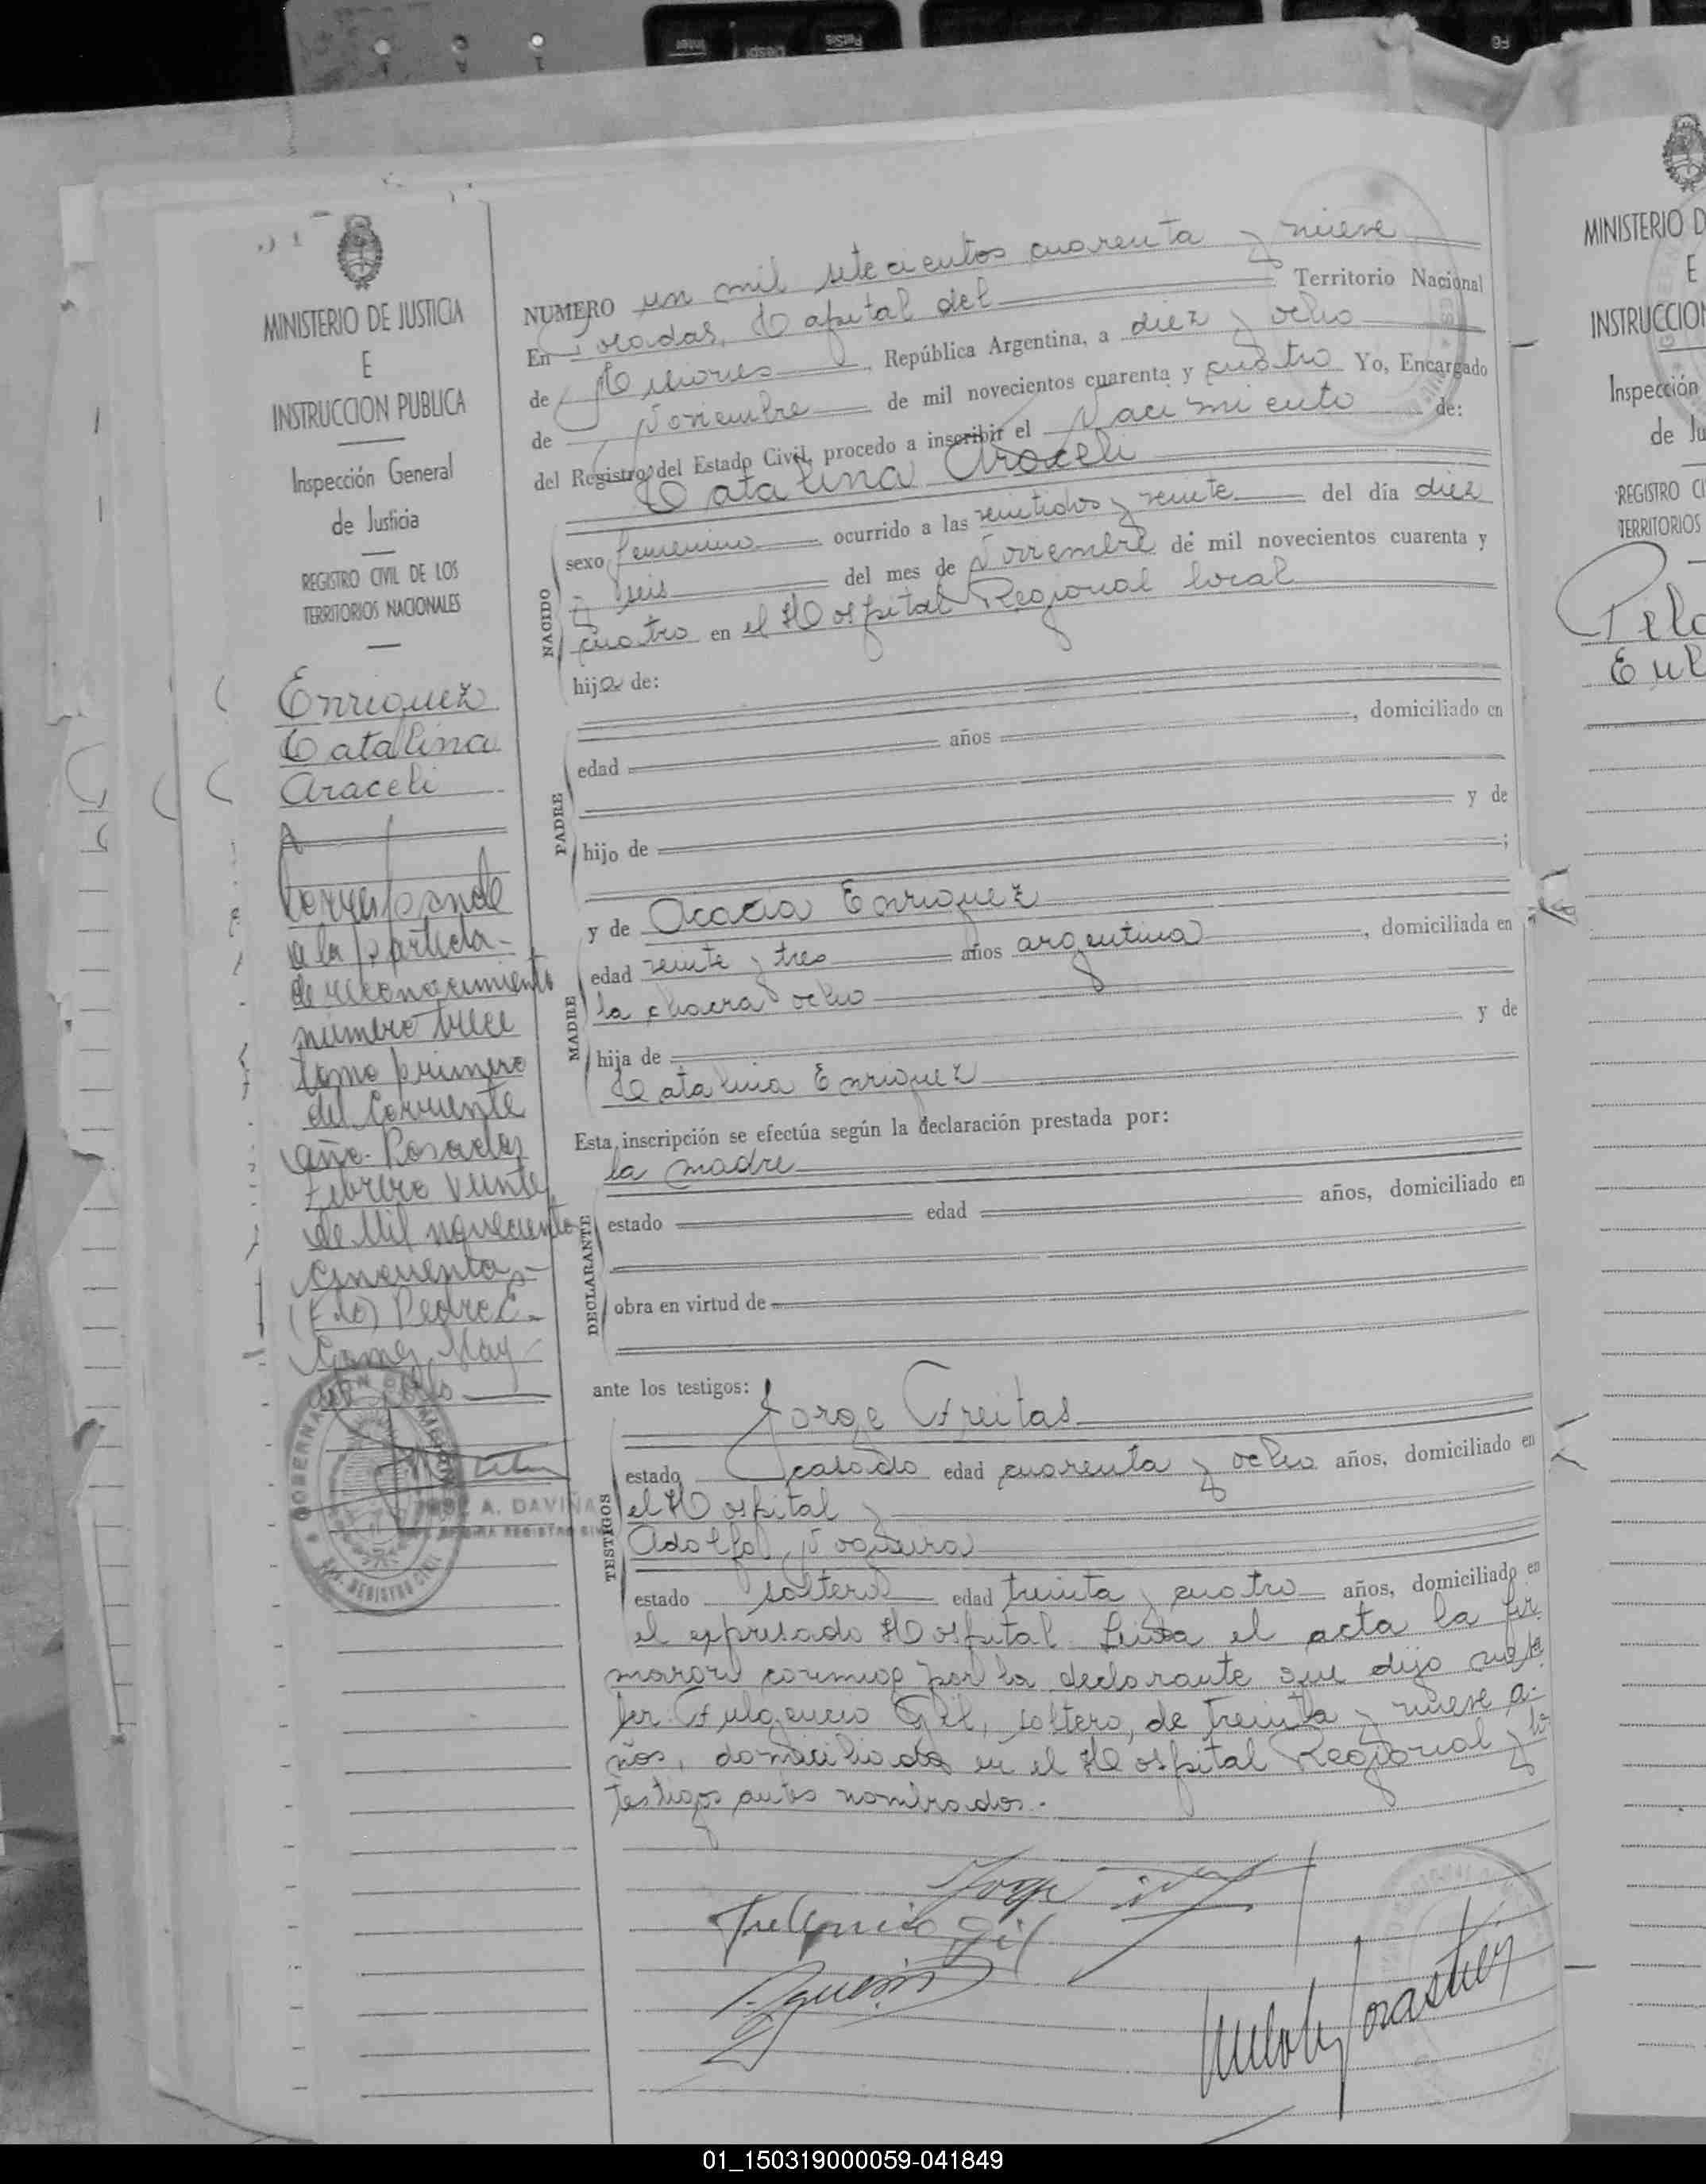 MINISTERIO DE JUSTICIA
E
INSTRUCCION PUBLICA
Inspección General
de Justicia
REGISTRO CIVIL DE LOS
TERRITORIOS NACIONALES
Enriquez
Catalina
Araceli
Corresponde
a la partida
de reconocimiento
número trece
tomo primero
del Corriente
año. Posadas
Febrero veinte
de Mil novecientos
cincuenta
(Fdo) Pedro C.
Gomez
A. DAVIÑA
NUMERO un mil setecientos cuarenta y nueve
En Posadas, Capital del Territorio Nacional
de Misiones, República Argentina, a diez y ocho
de Noviembre de mil novecientos cuarenta y cuatro Yo, Encargado
del Registro del Estado Civil, procedo a inscribir el Nacimiento de:
Catalina Araceli
NACIDO
sexo femenino ocurrido a las veintidos y veinte del día diez
y seis del mes de Noviembre de mil novecientos cuarenta y
cuatro en el Hospital Regional local
hija de:
PADRE
edad años , domiciliado en
hijo de y de
;
MADRE
y de Acacia Enriquez
edad veinte y tres años argentina, domiciliada en
la chacra ocho
hija de y de
Catalina Enriquez
Esta inscripción se efectúa según la declaración prestada por:
la madre
DECLARANTE
estado edad años, domiciliado en
obra en virtud de
ante los testigos:
Jorge Freitas
TESTIGOS
estado casado edad cuarenta y ocho años, domiciliado en
el Hospital y
Adolfo Nogueira
estado soltero edad treinta y cuatro años, domiciliado en
el expresado Hospital. Leida el acta la fir
maron conmigo por la declarante que dijo no sa
ber Fulgencio Gil, soltero, de treinta y nueve a-
ños, domiciliado en el Hospital Regional y los
testigos antes nombrados.-
Jorge
Fulgencio Gil
MINISTERIO D
E
INSTRUCCION
Inspección
de Ju
REGISTRO CI
TERRITORIOS
01_150319000059-041849